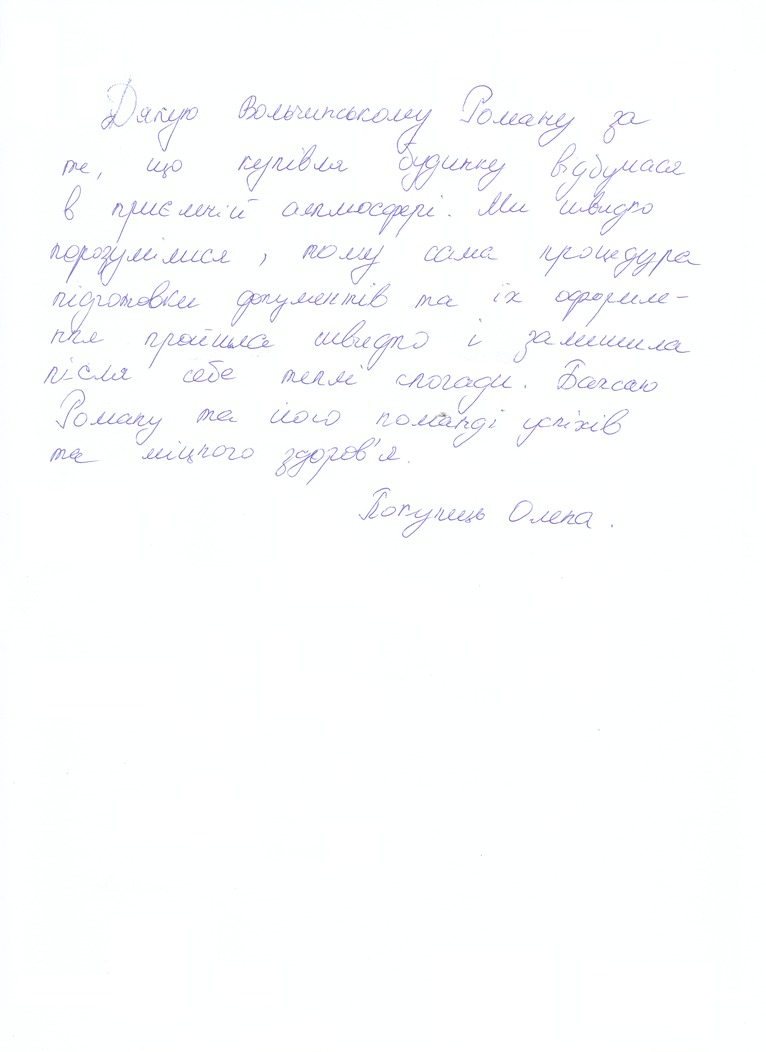 Дякую Вольчинському Роману за
те, що купівля будинку відбулася
в приємній атмосфері. Ми швидко
порозумілися, тому сама процедура
підготовки документів та їх оформле-
ння пройшла швидко і залишила
після себе теплі спогади. Бажаю
Роману та його команді успіхів
та міцного здоров'я.
Покупець Олена.